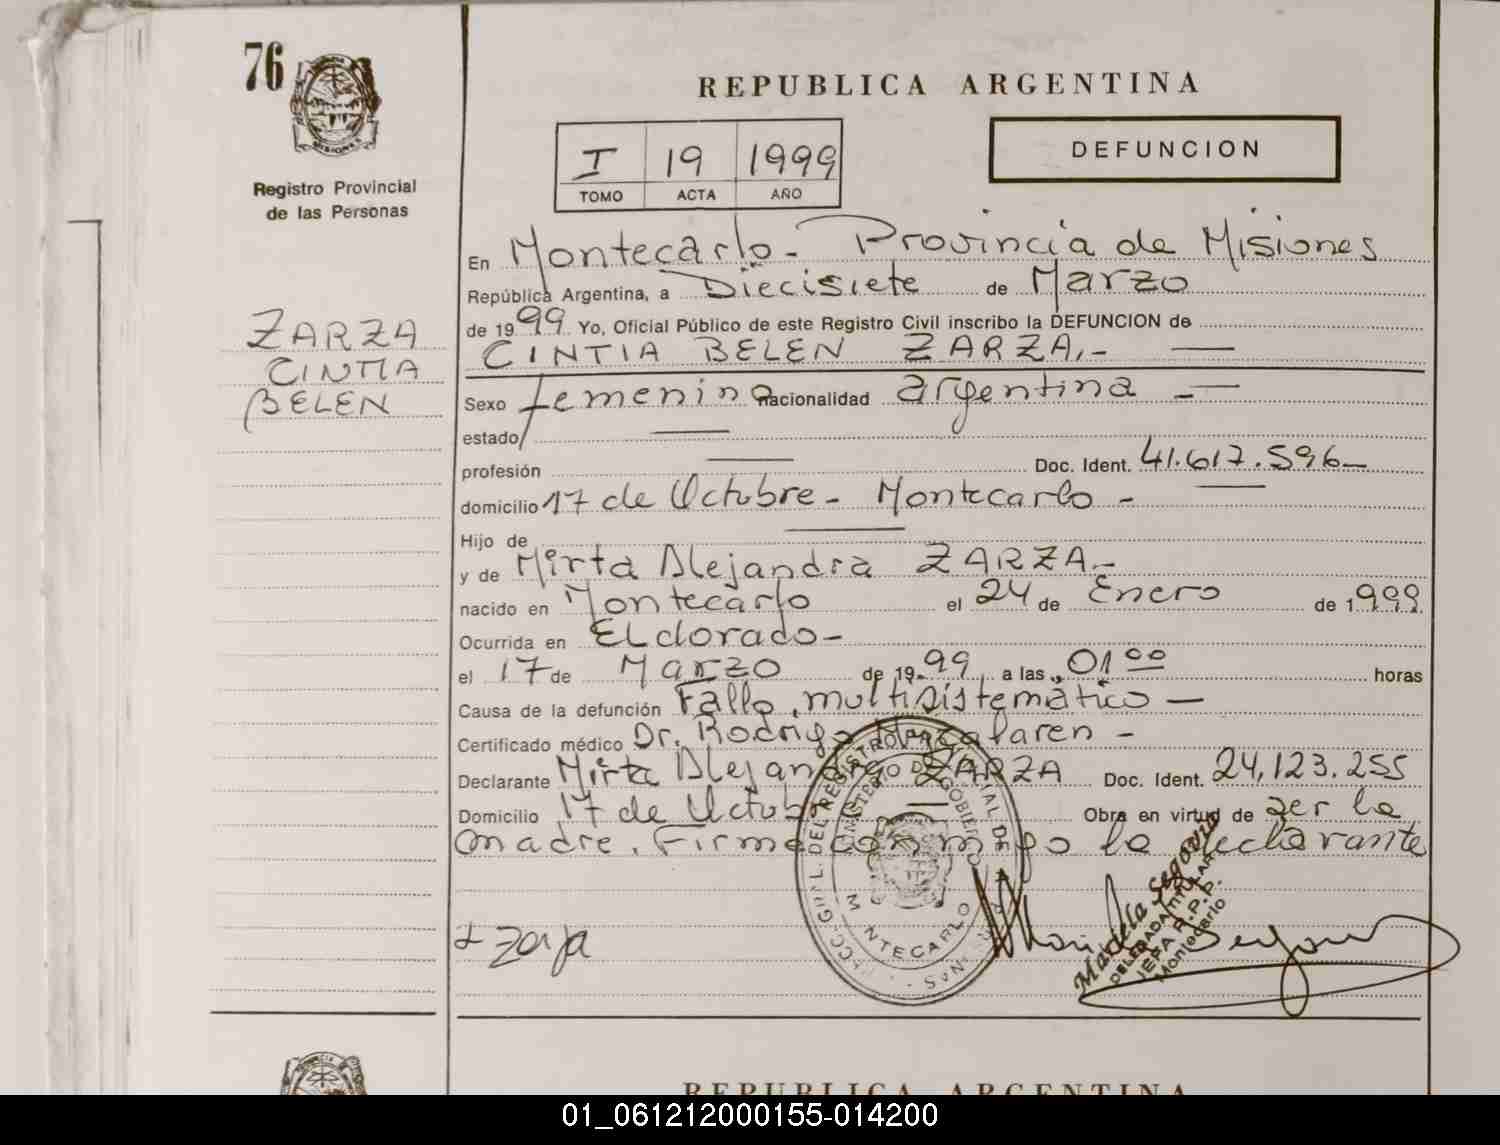 76
MISIONES
Registro Provincial
de las Personas
ZARZA
CINTIA
BELEN
REPUBLICA ARGENTINA
I 19 1999
TOMO ACTA AÑO
DEFUNCION
En Montecarlo - Provincia de Misiones
República Argentina, a Diecisiete de Marzo
de 1999 Yo, Oficial Público de este Registro Civil inscribo la DEFUNCION de
CINTIA BELEN ZARZA.- —
Sexo femenino nacionalidad argentina - —
estado —
profesión — Doc. Ident. 41.617.596—
domicilio 17 de Octubre - Montecarlo - —
Hijo de —
y de Mirta Alejandra ZARZA.-
nacido en Montecarlo el 24 de Enero de 1999
Ocurrida en Eldorado -
el 17 de Marzo de 1999 a las 01 00 horas
Causa de la defunción Fallo multisistemático —
Certificado médico Dr. Rodrigo -
Declarante Mirta Alejandra ZARZA Doc. Ident. 24.123.255
Domicilio 17 de Octubre — Obra en virtud de ser la
madre. Firma conmigo la declarante
Zarza
MINISTERIO DE GOBIERNO
MONTECARLO
Mariela Segovia
DELEGADA TITULAR
JEFA R.P.P.
Montecarlo
REPUBLICA ARGENTINA
01_061212000155-014200